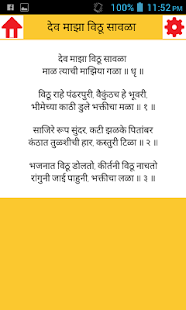 100% 11:52 PM
देव माझा विठू सावळा
देव माझा विठू सावळा
माळ त्याची माझिया गळा ॥ धृ ॥
विठू राहे पंढरपुरी, वैकुंठच हे भूवरी,
भीमेच्या काठी डुले भक्तीचा मळा ॥ १ ॥
साजिरे रूप सुंदर, कटी झळके पितांबर
कंठात तुळशीची हार, कस्तुरी टिळा ॥ २ ॥
भजनात विठू डोलतो, कीर्तनी विठू नाचतो
रांगुनी जाई पाहुनी, भक्तीचा लळा ॥ ३ ॥